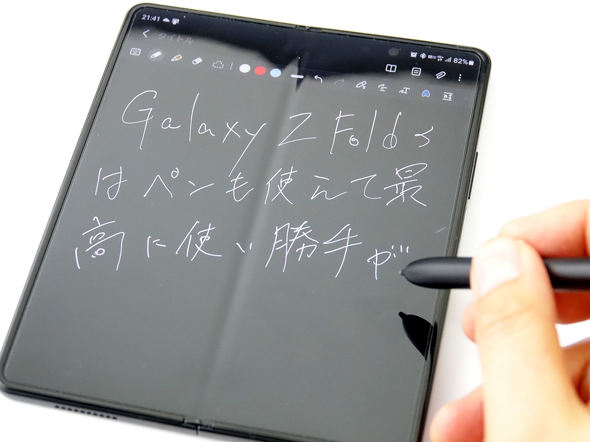 21:41
82%
タイトル
Galaxy Z Fold5
はペンも使えて最
高に使い勝手が